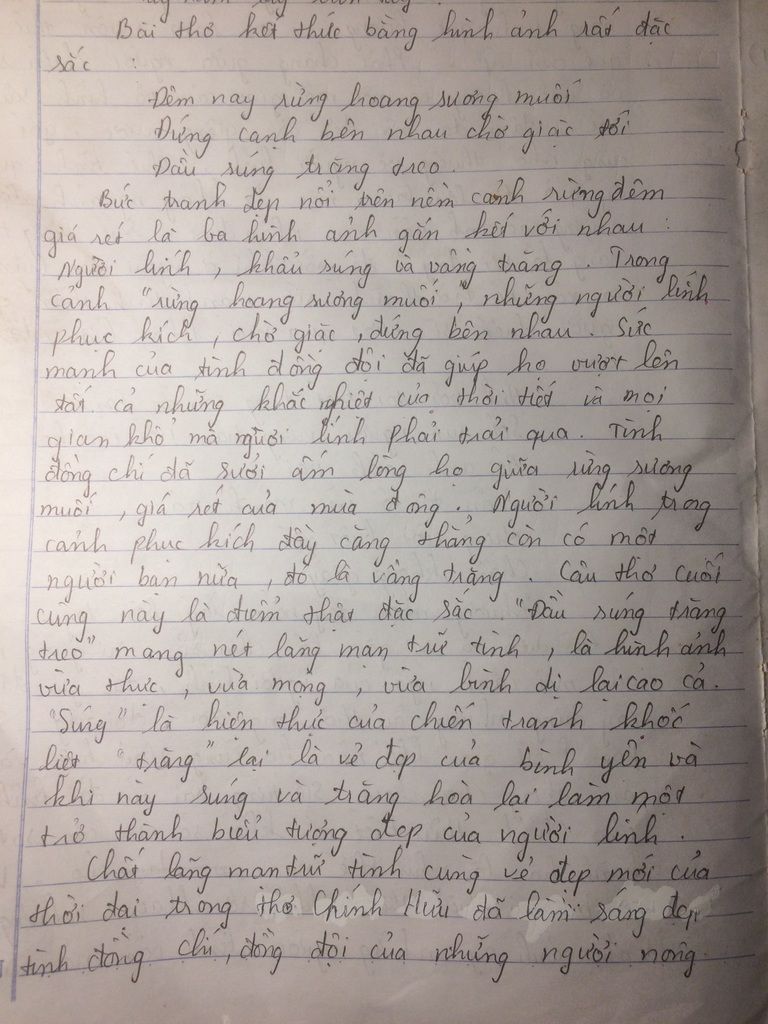 Bài thơ kết thúc bằng hình ảnh rất đặc
sắc :
Đêm nay rừng hoang sương muối
Đứng cạnh bên nhau chờ giặc tới
Đầu súng trăng treo.
Bức tranh đẹp nổi trên nềm cảnh rừng đêm
giá rét là ba hình ảnh gắn kết với nhau :
Người lính, khẩu súng và vầng trăng. Trong
cảnh "rừng hoang sương muối", những người lính
phục kích, chờ giặc, đứng bên nhau. Sức
mạnh của tình đồng đội đã giúp họ vượt lên
tất cả những khắc nghiệt của thời tiết và mọi
gian khổ mà người lính phải trải qua. Tình
đồng chí đã sưởi ấm lòng họ giữa rừng sương
muối, giá rét của mùa đông. Người lính trong
cảnh phục kích đầy căng thẳng còn có một
người bạn nữa, đó là vầng trăng. Câu thơ cuối
cùng này là điểm thật đặc sắc. "Đầu súng trăng
treo" mang nét lãng mạn trữ tình, là hình ảnh
vừa thực, vừa mộng, vừa bình dị lại cao cả.
"Súng" là hiện thực của chiến tranh khốc
liệt "trăng" lại là vẻ đẹp của bình yên và
khi này súng và trăng hoà lại làm một
trở thành biểu tượng đẹp của người lính.
Chất lãng mạn trữ tình cùng vẻ đẹp mới của
thời đại trong thơ Chính Hữu đã làm sáng đẹp
tình đồng chí, đồng đội của những người nông